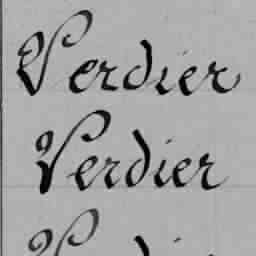 Verdier
Verdier